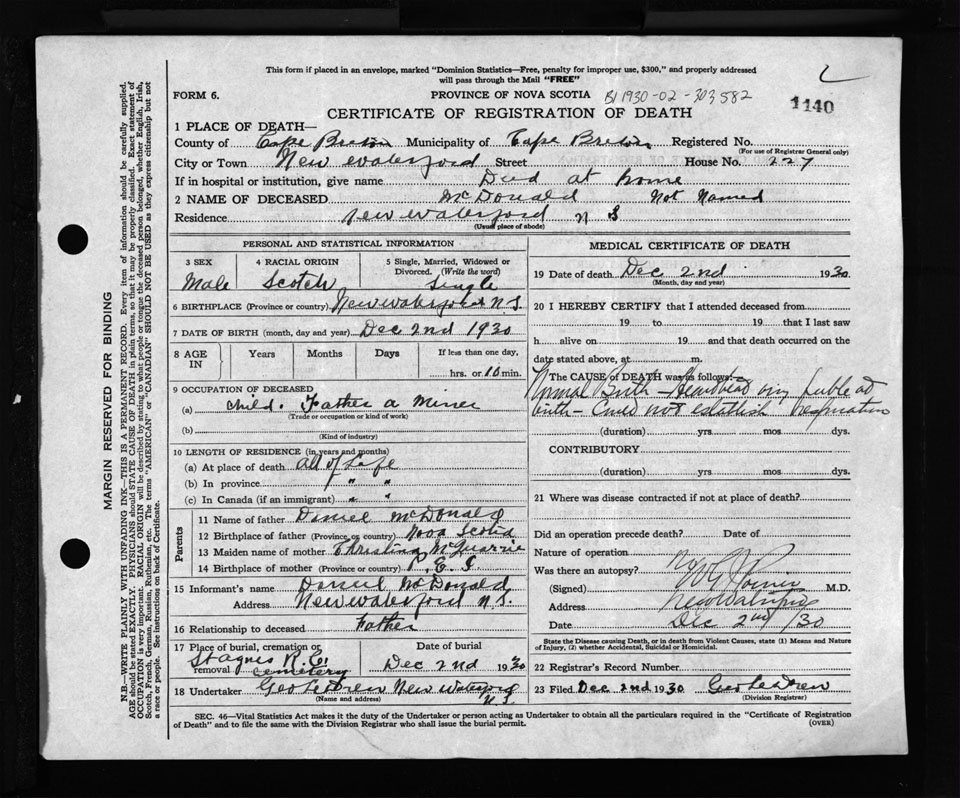 This form if placed in an envelope, marked "Dominion Statistics—Free, penalty for improper use, $300," and properly addressed
will pass through the Mail "FREE"
FORM 6.
PROVINCE OF NOVA SCOTIA
B1 1930-02-303582
1140
CERTIFICATE OF REGISTRATION OF DEATH
1 PLACE OF DEATH—
County of Cape Breton Municipality of Cape Breton Registered No.
(For use of Registrar General only)
City or Town New Waterford Street House No. 227
If in hospital or institution, give name Died at home
2 NAME OF DECEASED McDonald Not Named
Residence New Waterford N S
(Usual place of abode)
PERSONAL AND STATISTICAL INFORMATION
3 SEX 4 RACIAL ORIGIN 5 Single, Married, Widowed or Divorced. (Write the word)
Male Scotch Single
6 BIRTHPLACE (Province or country) New Waterford N.S.
7 DATE OF BIRTH (month, day and year) Dec 2nd 1930
8 AGE IN Years Months Days If less than one day,
hrs. or 10 min.
9 OCCUPATION OF DECEASED
(a) child. Father a Miner
(Trade or occupation or kind of work)
(b)
(Kind of industry)
10 LENGTH OF RESIDENCE (in years and months)
(a) At place of death All of Life
(b) In province " "
(c) In Canada (if an immigrant) " "
Parents
11 Name of father Daniel McDonald
12 Birthplace of father (Province or country) Nova Scotia
13 Maiden name of mother Christina McQuarrie
14 Birthplace of mother (Province or country) P. E. I
15 Informant's name Daniel McDonald
Address New Waterford N.S.
16 Relationship to deceased Father
17 Place of burial, cremation or removal St Agnes R.C. cemetery
Date of burial Dec 2nd 1930
18 Undertaker Geo LeDrew New Waterford N.S.
(Name and address)
MEDICAL CERTIFICATE OF DEATH
19 Date of death Dec 2nd 1930
(Month, day and year)
20 I HEREBY CERTIFY that I attended deceased from
19 to 19 that I last saw
h alive on 19 and that death occurred on the
date stated above, at m.
The CAUSE of DEATH was as follows:
Normal Birth — Heartbeat very feeble at
birth — Could not establish respiration
(duration) yrs mos dys.
CONTRIBUTORY
(duration) yrs mos dys.
21 Where was disease contracted if not at place of death?
Did an operation precede death? Date of
Nature of operation
Was there an autopsy? No
(Signed) M.D.
Address New Waterford
Date Dec 2nd /30
State the Disease causing Death, or in death from Violent Causes, state (1) Means and Nature
of Injury, (2) whether Accidental, Suicidal or Homicidal.
22 Registrar's Record Number
23 Filed Dec 2nd 1930 Geo LeDrew
(Division Registrar)
SEC. 46—Vital Statistics Act makes it the duty of the Undertaker or person acting as Undertaker to obtain all the particulars required in the "Certificate of Registration
of Death" and to file the same with the Division Registrar who shall issue the burial permit.
(OVER)
MARGIN RESERVED FOR BINDING
N.B.—WRITE PLAINLY WITH UNFADING INK—THIS IS A PERMANENT RECORD. Every item of information should be carefully supplied.
AGE should be stated EXACTLY. PHYSICIANS should STATE CAUSE OF DEATH in plain terms, so that it may be properly classified. Exact statement of
OCCUPATION is very important. RACIAL ORIGIN will be described by stating to what people or tongue the deceased person belonged, whether English, Irish,
Scotch, French, German, Russian, Ruthenian, etc. The terms "AMERICAN" or "CANADIAN" SHOULD NOT BE USED as they express citizenship but not
a race or people. See instructions on back of Certificate.